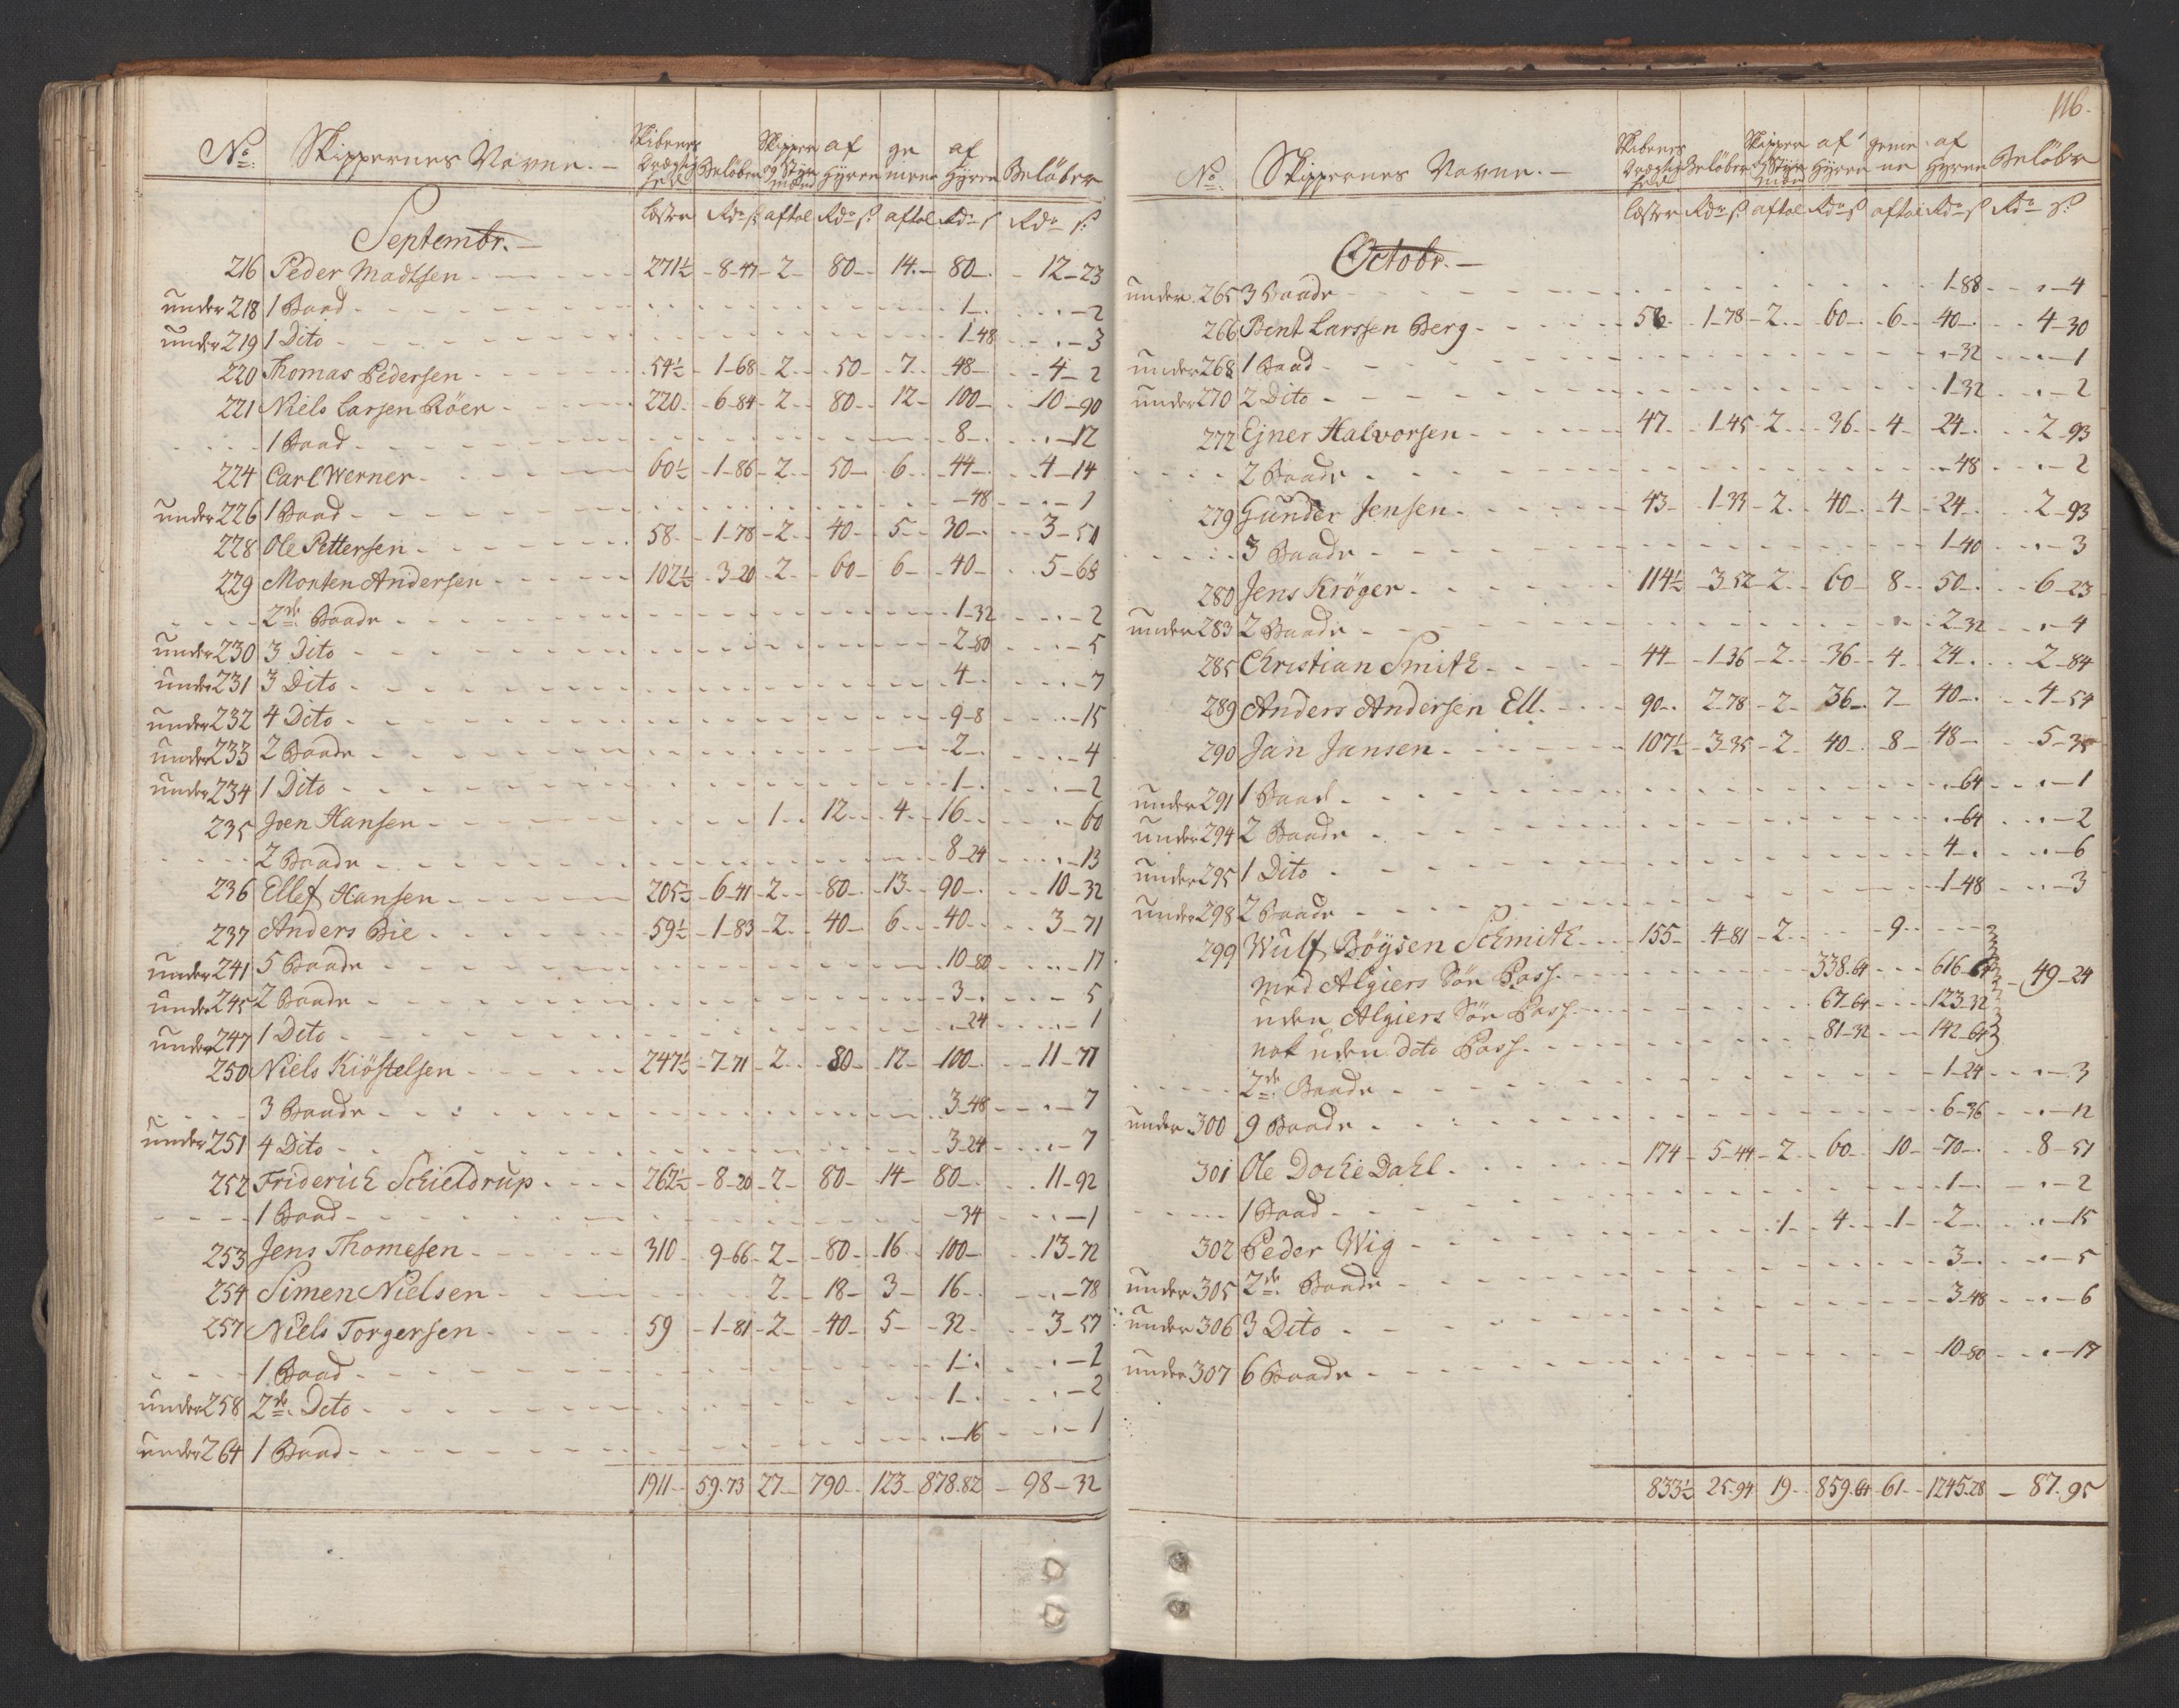 No. Skippernes Navne. Skibenes Drægtighed Beløber Skipper og Styrmænd af Hyren gemene af Hyren Beløber
Læster Rdr ß aftal Rdr ß aftal Rdr ß Rdr ß
Septembr.
216 Peder Madtsen 271½ 8-47 2 80 14 80 12-23
under 218 1 Baad 1 2
under 219 1 Dito 1-48 3
220 Thomas Pedersen 54½ 1-68 2 50 7 48 4-2
221 Niels Larsen Röer 220 6-84 2 80 12 100 10-90
1 Baad 8 12
224 Carl Werner 60½ 1-86 2 50 6 44 4-14
under 226 1 Baad 48 1
228 Ole Pettersen 58 1-78 2 40 5 30 3-51
229 Morten Andersen 102½ 3-20 2 60 6 40 5-68
2de Baade 1-32 2
under 230 3 Dito 2-80 5
under 231 3 Dito 4 7
under 232 4 Dito 9-8 15
under 233 2 Baade 2 4
under 234 1 Dito 1 2
235 Joen Hansen 1 12 4 16 60
2 Baade 8-24 13
236 Ellef Hansen 205½ 6-41 2 80 13 90 10-32
237 Anders Bie 59½ 1-83 2 40 6 40 3-71
under 241 5 Baade 10-80 17
under 245 2 Baade 3 5
under 247 1 Dito 24 1
250 Niels Kiöstelsen 247½ 7-71 2 80 12 100 11-77
3 Baade 3-48 7
under 251 4 Dito 3-24 7
252 Friderich Schieldrup 262½ 8-20 2 80 14 80 11-92
1 Baad 34 1
253 Jens Thomesen 310 9-66 2 80 16 100 13-72
254 Simen Nielsen 2 18 3 16 78
257 Niels Torgersen 59 1-81 2 40 5 32 3-57
1 Baad 1 2
under 258 2de Dito 1 2
under 264 1 Baad 16 1
1911 59.73 27 790 123 878.82 98-32
116.
No. Skippernes Navne. Skibenes Drægtighed Beløber Skipper og Styrmænd af Hyren gemene af Hyren Beløber
Læster Rdr ß aftal Rdr ß aftal Rdr ß Rdr ß
Octobr.
under 265 3 Baade 1-88 4
266 Bent Larssen Berg 58 1-78 2 60 6 40 4-30
under 268 1 Baad 32 1
under 270 2 Dito 1-32 2
272 Ejner Halvorsen 47 1-45 2 36 4 24 2-93
2 Baade 48 2
279 Gunder Jensen 43 1-33 2 40 4 24 2-93
3 Baade 1-40 3
280 Jens Kröger 114½ 3-52 2 60 8 50 6-23
under 283 2 Baade 2-32 4
285 Christian Smith 44 1-36 2 36 4 24 2-84
289 Anders Andersen Ell. 90 2-78 2 36 7 40 4-54
290 Jan Jansen 107½ 3-35 2 40 8 48 5-35
under 291 1 Baad 64 1
under 294 2 Baade 64 2
under 295 1 Dito 4 6
under 298 2 Baade 1-48 3
299 Wulf Böysen Schmith 155 4-81 2 9
med Algiers Søe Pass 338.64 616-64 49-24
uden Algiers Søe Pass 67-64 123-32
nok uden dito Pass 81-32 142-64
2de Baade 1-24 3
under 300 9 Baade 6-36 12
301 Ole Doche Dahl 174 5-44 2 60 10 70 8-51
1 Baad 1 2
302 Peder Wig 1 4 1 2 15
under 305 2de Baade 3 5
under 306 3 Dito 3-48 6
under 307 6 Baade 10-80 17
833½ 25.94 19 859.64 61 1245.28 87.95